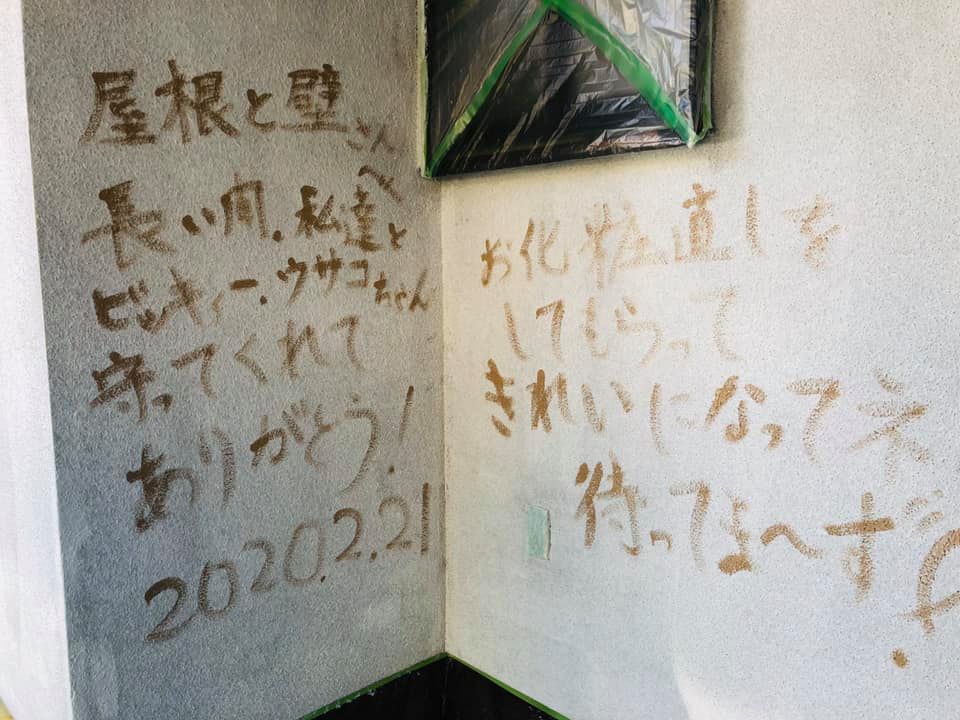 屋根と壁さんへ
長い間、私達と
ビッキィー、ウサコちゃん
守ってくれて
ありがとう!
2020.2.21
お化粧直しを
してもらって
きれいになってネ
待ってよ〜す